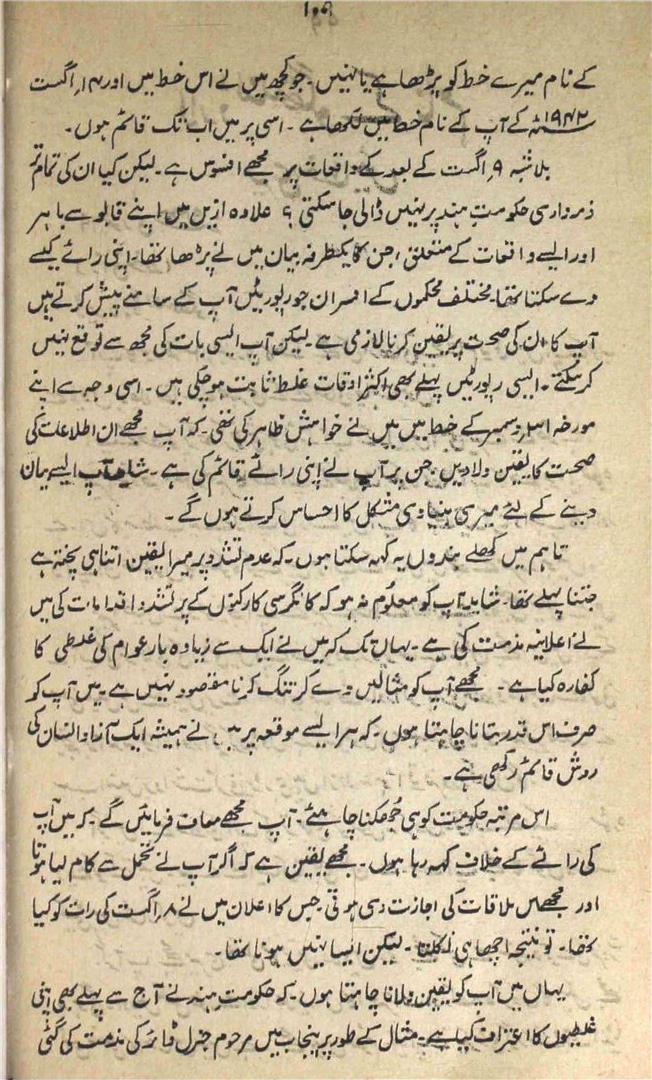 کے نام میرے خط کو پڑھا ہے یا نہیں۔ جو کچھ میں نے اس خط میں اور ۱۴؍ اگست
۱۹۴۲ء کے آپ کے نام خط میں لکھا ہے۔ اسی پر میں اب تک قائم ہوں۔
بلاشبہ ۹؍ اگست کے بعد کے واقعات پر مجھے افسوس ہے۔ لیکن کیا ان کی تمام تر
ذمہ داری حکومتِ ہند پر نہیں ڈالی جا سکتی؟ علاوہ ازیں میں اپنے قابو سے باہر
اور ایسے واقعات کے متعلق، جن کا یکطرفہ بیان میں نے پڑھا تھا۔ اپنی رائے کیسے
دے سکتا تھا۔ مختلف محکموں کے افسران جو رپورٹیں آپ کے سامنے پیش کرتے ہیں
آپ کا ان کی صحت پر یقین کرنا لازمی ہے۔ لیکن آپ ایسی بات کی مجھ سے توقع نہیں
کر سکتے۔ ایسی رپورٹیں پہلے بھی اکثر اوقات غلط ثابت ہو چکی ہیں۔ اسی وجہ سے اپنے
مورخہ ۳۱؍ دسمبر کے خط میں میں نے خواہش ظاہر کی تھی۔ کہ آپ مجھے ان اطلاعات کی
صحت کا یقین دلا دیں۔ جن پر آپ نے اپنی رائے قائم کی ہے۔ شاید آپ ایسے بیان
دینے کے لئے میری بنیادی مشکل کا احساس کرتے ہوں گے۔
تاہم میں کھلے بندوں یہ کہہ سکتا ہوں۔ کہ عدم تشدد پر میرا یقین اتنا ہی پختہ ہے
جتنا پہلے تھا۔ شاید آپ کو معلوم نہ ہو کہ کانگرسی کارکنوں کے پرتشدد اقدامات کی میں
نے اعلانیہ مذمت کی ہے۔ یہاں تک کہ میں نے ایک سے زیادہ بار عوام کی غلطی کا
کفارہ کیا ہے۔ مجھے آپ کو مثالیں دے کر تنگ کرنا مقصود نہیں ہے۔ میں آپ کو
صرف اس قدر بتانا چاہتا ہوں۔ کہ ہر ایسے موقعہ پر میں نے ہمیشہ ایک آزاد انسان کی
روش قائم رکھی ہے۔
اس مرتبہ حکومت کو ہی جھکنا چاہئے۔ آپ مجھے معاف فرمائیں گے۔ کہ میں آپ
کی رائے کے خلاف کہہ رہا ہوں۔ مجھے یقین ہے کہ اگر آپ نے تحمل سے کام لیا ہوتا
اور مجھے ملاقات کی اجازت دی ہوتی۔ جس کا اعلان میں نے ۸؍ اگست کی رات کو کیا
تھا۔ تو نتیجہ اچھا ہی نکلتا۔ لیکن ایسا نہیں ہونا تھا۔
یہاں میں آپ کو یقین دلانا چاہتا ہوں۔ کہ حکومتِ ہند نے آج سے پہلے بھی اپنی
غلطیوں کا اعتراف کیا ہے۔ مثال کے طور پر پنجاب میں مرحوم جنرل ڈائر کی مذمت کی گئی